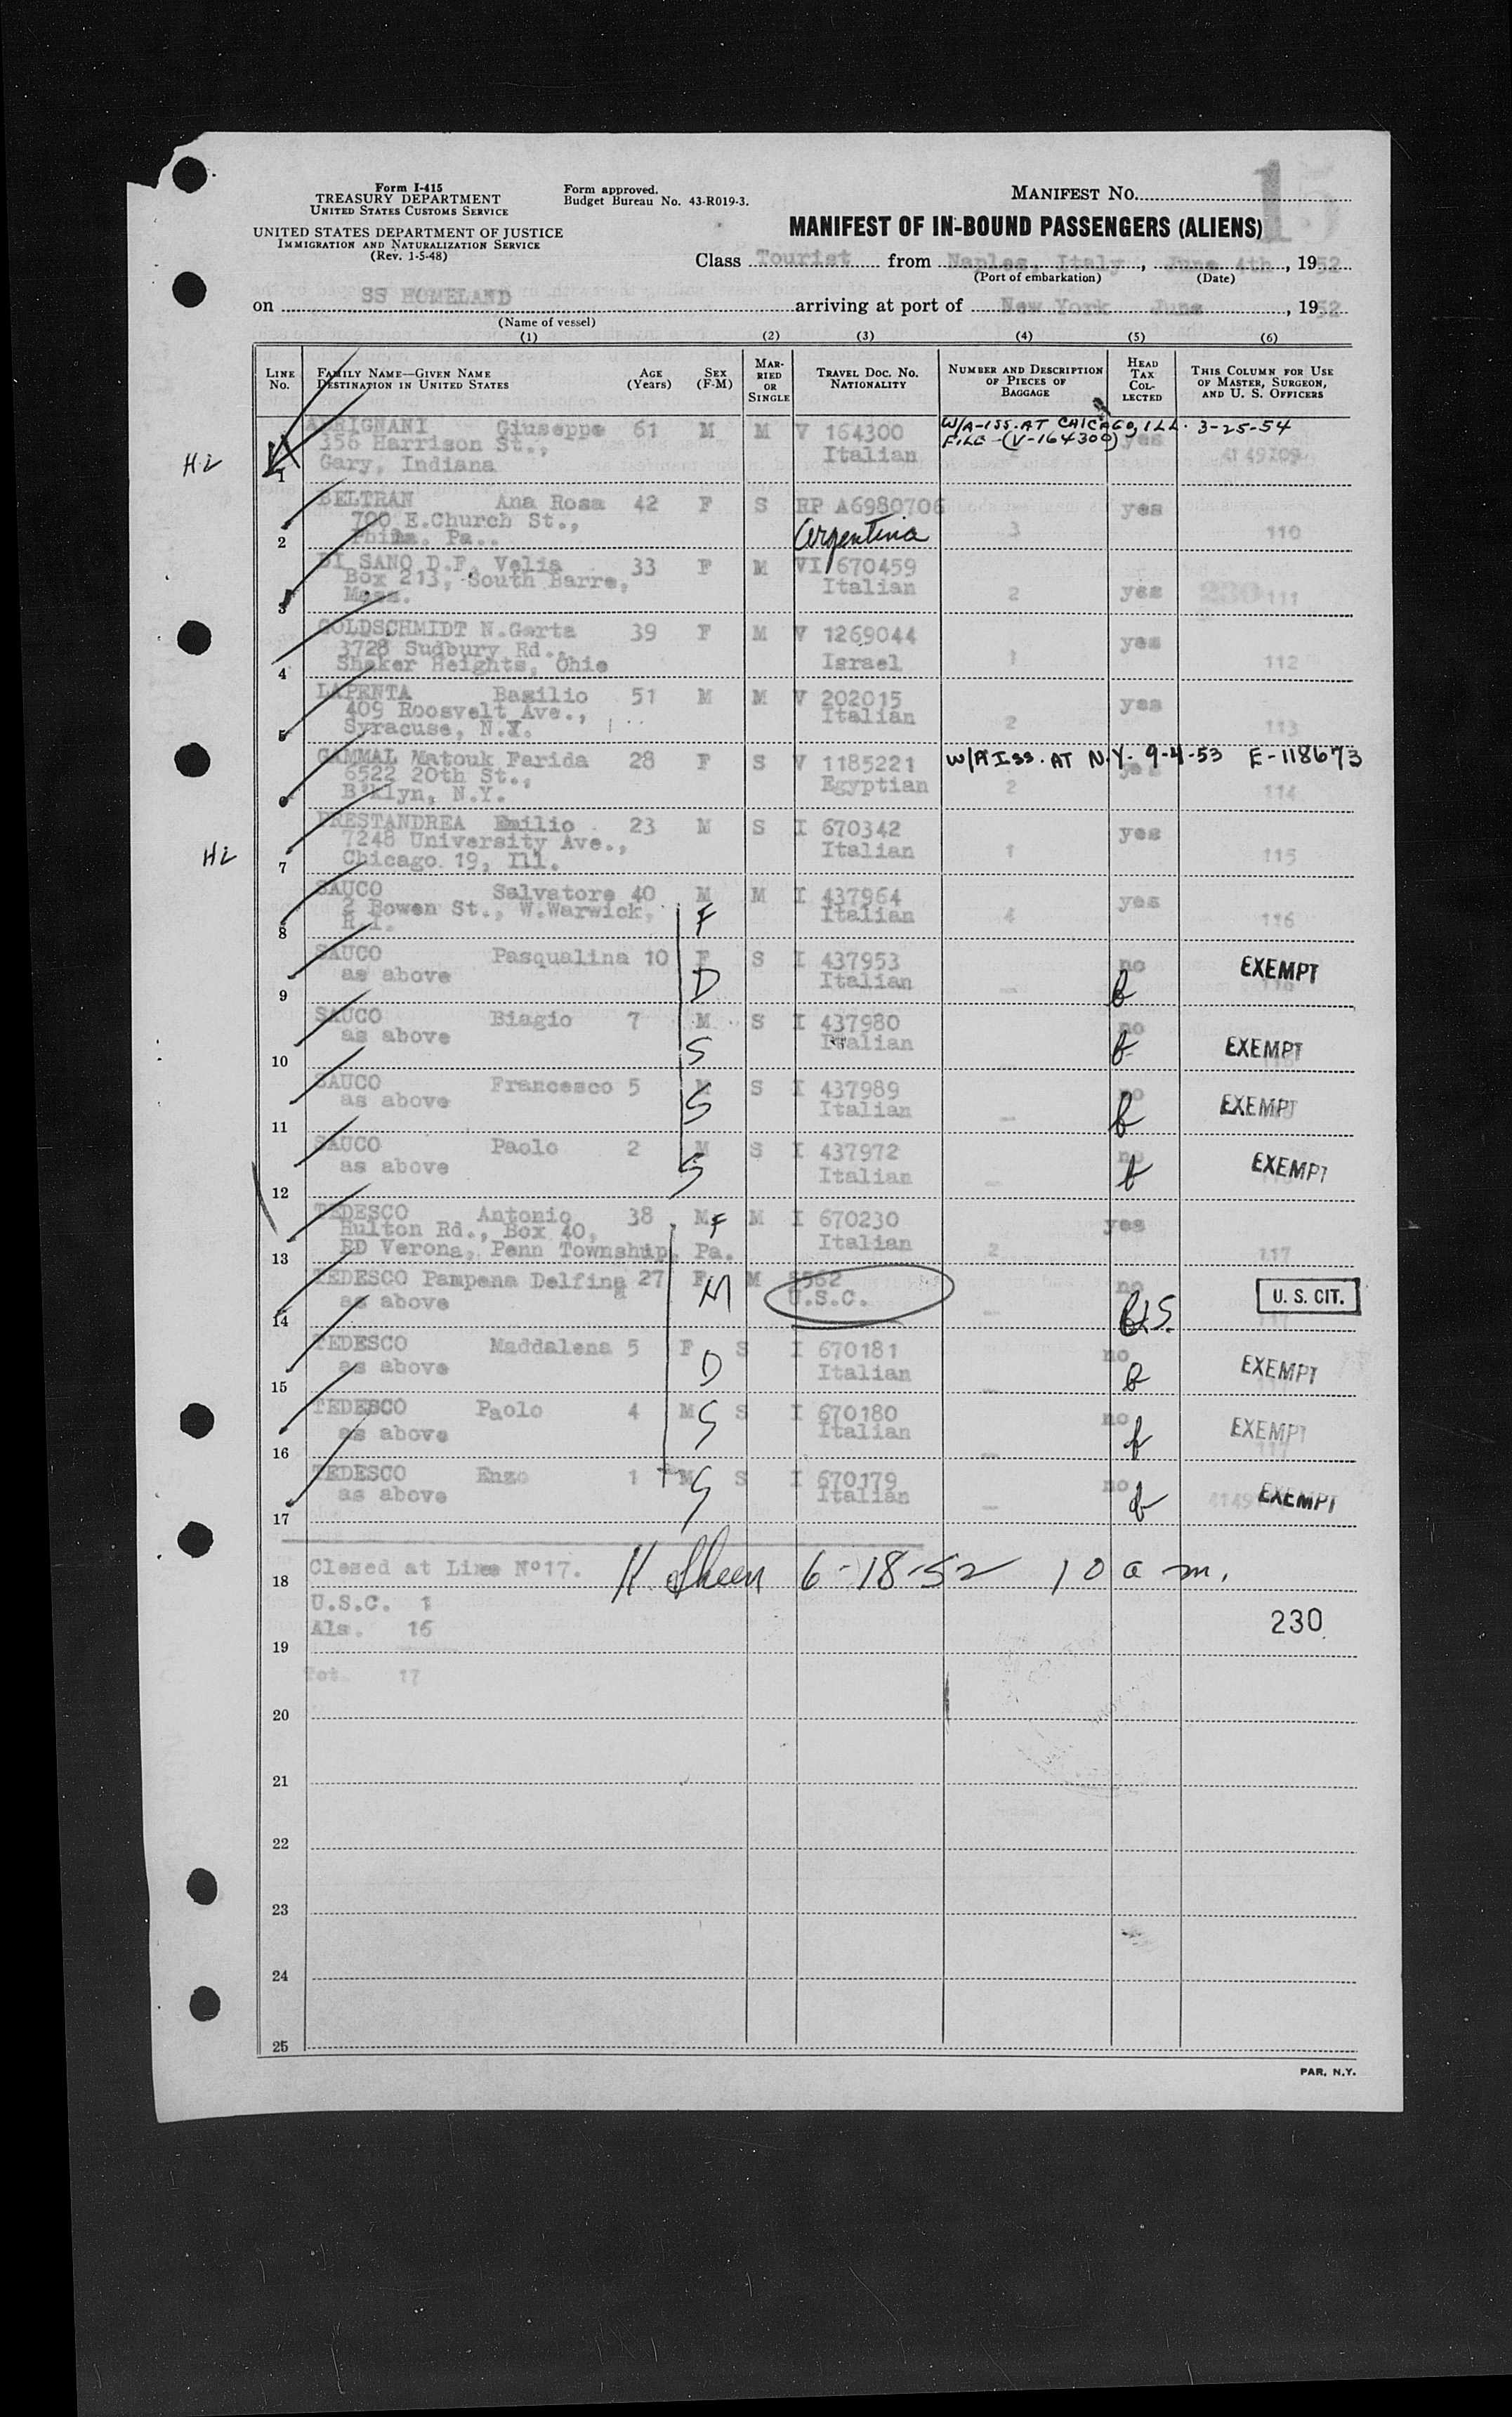 Form I-415
TREASURY DEPARTMENT
UNITED STATES CUSTOMS SERVICE
UNITED STATES DEPARTMENT OF JUSTICE
IMMIGRATION AND NATURALIZATION SERVICE
(Rev. 1-5-48)
Form approved.
Budget Bureau No. 43-R019-3.
MANIFEST NO. 15
MANIFEST OF IN-BOUND PASSENGERS (ALIENS)
Class Tourist from Naples, Italy, June 4th, 1952
(Port of embarkation) (Date)
on SS HOMELAND arriving at port of New York June, 1952
(Name of vessel)
(1) (2) (3) (4) (5) (6)
LINE No. FAMILY NAME—GIVEN NAME DESTINATION IN UNITED STATES AGE (Years) SEX (F-M) MARRIED OR SINGLE TRAVEL DOC. NO. NATIONALITY NUMBER AND DESCRIPTION OF PIECES OF BAGGAGE HEAD TAX COLLECTED THIS COLUMN FOR USE OF MASTER, SURGEON, AND U. S. OFFICERS
Giuseppe 61 M M V 164300 W/A-ISS. AT CHICAGO, ILL. 3-25-54
356 Harrison St., Italian FILE-(V-164300) yes
1 Gary, Indiana 2 4149209
BELTRAN Ana Rosa 42 F S RP A6980706 yes
700 E.Church St., Argentina 3 110
2 Phila. Pa..
DI SANO D.F. Velia 33 F M VI 670459
Box 213, South Barre, Italian 2 yes 230 111
3 Mass.
GOLDSCHMIDT N.Gerta 39 F M V 1269044 yes
3728 Sudbury Rd.,
4 Shaker Heights, Ohio Israel 1 112
LAPENTA Basilio 51 M M V 202015 yes
409 Roosvelt Ave., Italian 2 113
5 Syracuse, N.Y.
GAMMAL Matouk Farida 28 F S V 1185221 W/A ISS. AT N.Y. 9-4-53 E-118673
6522 20th St., Egyptian 2 yes 114
6 B'klyn, N.Y.
PRESTANDREA Emilio 23 M S I 670342 yes
7248 University Ave., Italian 1 115
7 Chicago 19, Ill.
SAUCO Salvatore 40 M M I 437964 yes
2 Bowen St., W.Warwick, F Italian 4 116
8 R.I.
SAUCO Pasqualina 10 F S I 437953 no EXEMPT
9 as above D Italian —
SAUCO Biagio 7 M S I 437980 no EXEMPT
10 as above S Italian —
SAUCO Francesco 5 M S I 437989 no EXEMPT
11 as above S Italian —
SAUCO Paolo 2 M S I 437972 no EXEMPT
12 as above S Italian —
TEDESCO Antonio 38 M F M I 670230 yes
Hulton Rd., Box 40, Italian 2 117
13 RD Verona, Penn Township, Pa.
TEDESCO Pampena Delfina 27 F M 8562 no U. S. CIT.
14 as above M U.S.C. —
TEDESCO Maddalena 5 F S I 670181 no EXEMPT
15 as above D Italian —
TEDESCO Paolo 4 M S I 670180 no EXEMPT
16 as above S Italian — 117
TEDESCO Enzo 1 M S I 670179 no EXEMPT
17 as above S Italian —
18 Closed at Line Nº17. 6-18-52 10 a m.
U.S.C. 1
19 Als. 16 230
Tot. 17
20
21
22
23
24
25
PAR, N.Y.